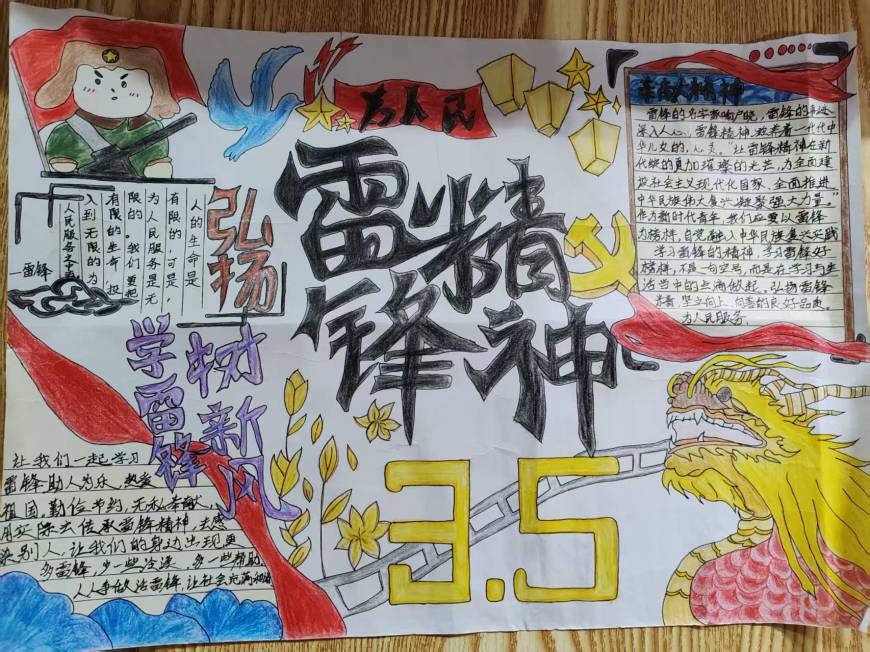 为人民
雷锋精神
弘扬
人的生命是
有限的,可是,
为人民服务是无
限的。我们要把
有限的生命,投
入到无限的为
人民服务中去
—雷锋
奉献精神
雷锋的名字家喻户晓,雷锋的事迹
深入人心,雷锋精神滋养着一代代中
华儿女的心灵。"让雷锋精神在新
代绽放更加璀璨的光芒,为全面建
设社会主义现代化国家、全面推进
中华民族伟大复兴凝聚强大力量。"
作为新时代青年,我们应要以雷锋
为榜样,自觉融入中华民族复兴实践
学习雷锋的精神,学习雷锋好
榜样,不是一句空号,而是在学习与生
活当中的点滴做起。弘扬雷锋
向上、向善的良好品质。
为人民服务.
学雷锋
树新风
3.5
让我们一起学习
雷锋助人为乐、热爱
祖国勤俭节约,无私奉献,
用实际去传承雷锋精神,去感
染别人,让我们的身边出现更
多雷锋,少一些冷漠,多一些帮助,
人人争做活雷锋,让社会充满和谐